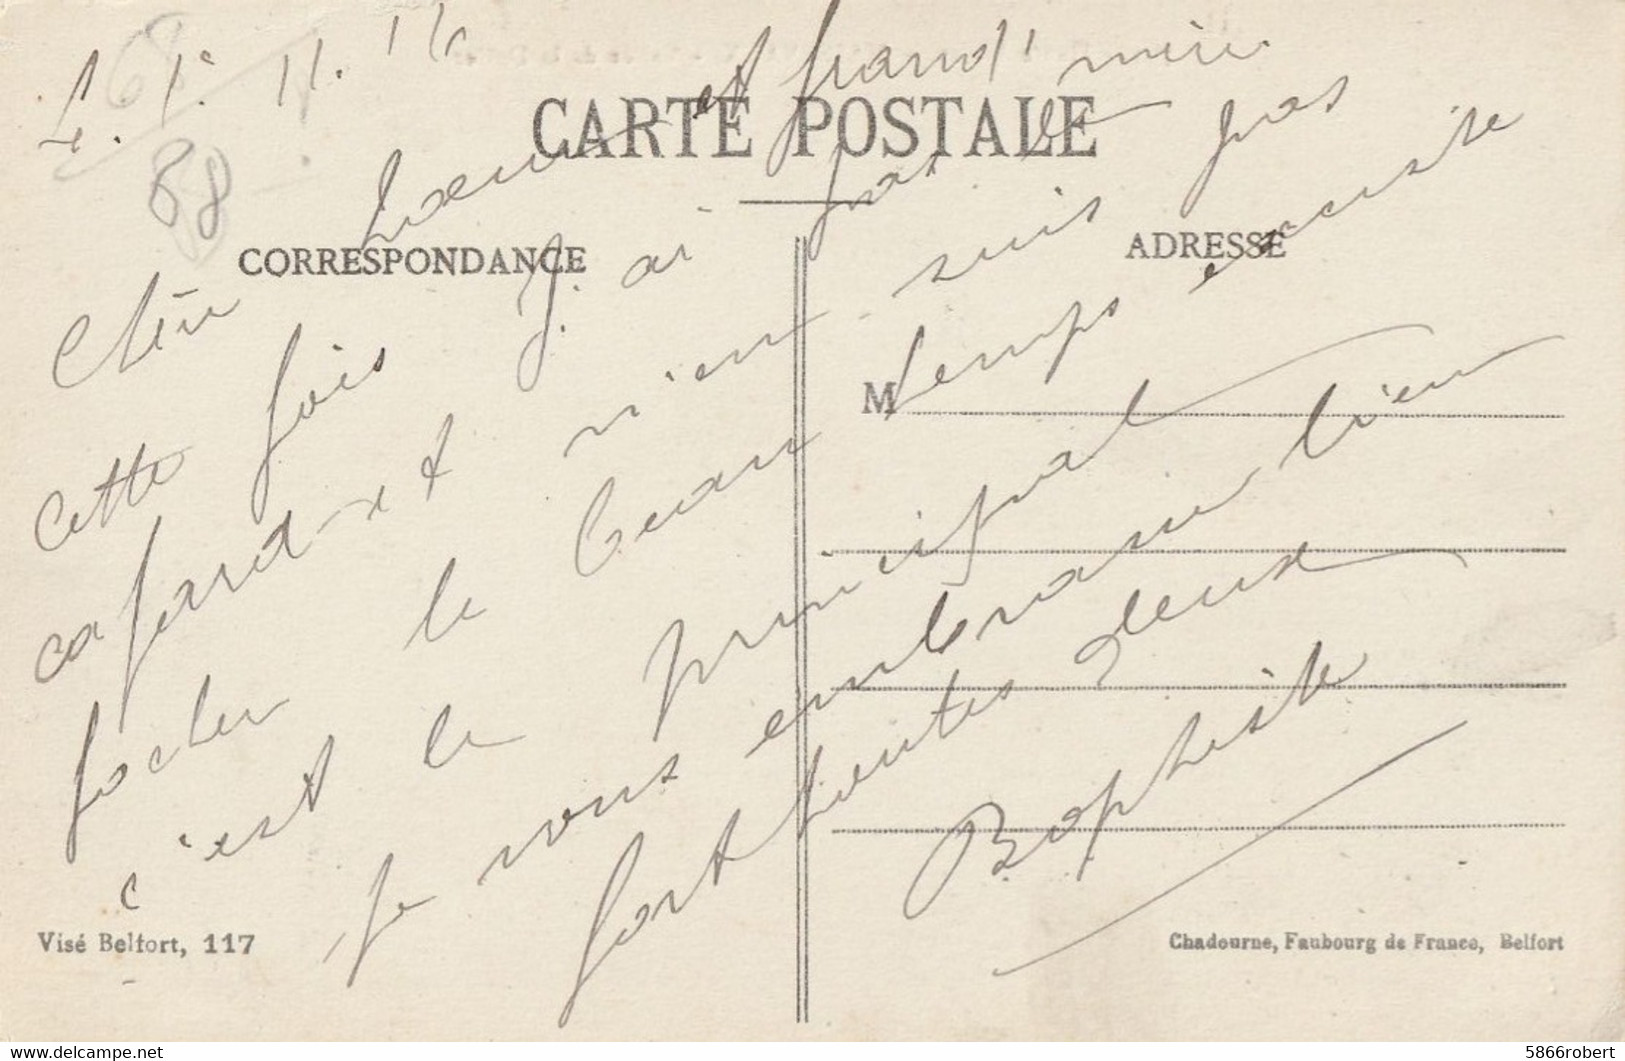 L. 1. 11. 16
68
88
CARTE POSTALE
CORRESPONDANCE
ADRESSE
M
Chère Soeur et grand'mère
cette fois j'ai pas le
cafard et rien suis pas
focher le beau temps ensuite
c'est le principal
Je vous embrasse bien
fort toutes deux
Baptiste
Visé Belfort, 117
Chadourne, Faubourg de France, Belfort
5866robert